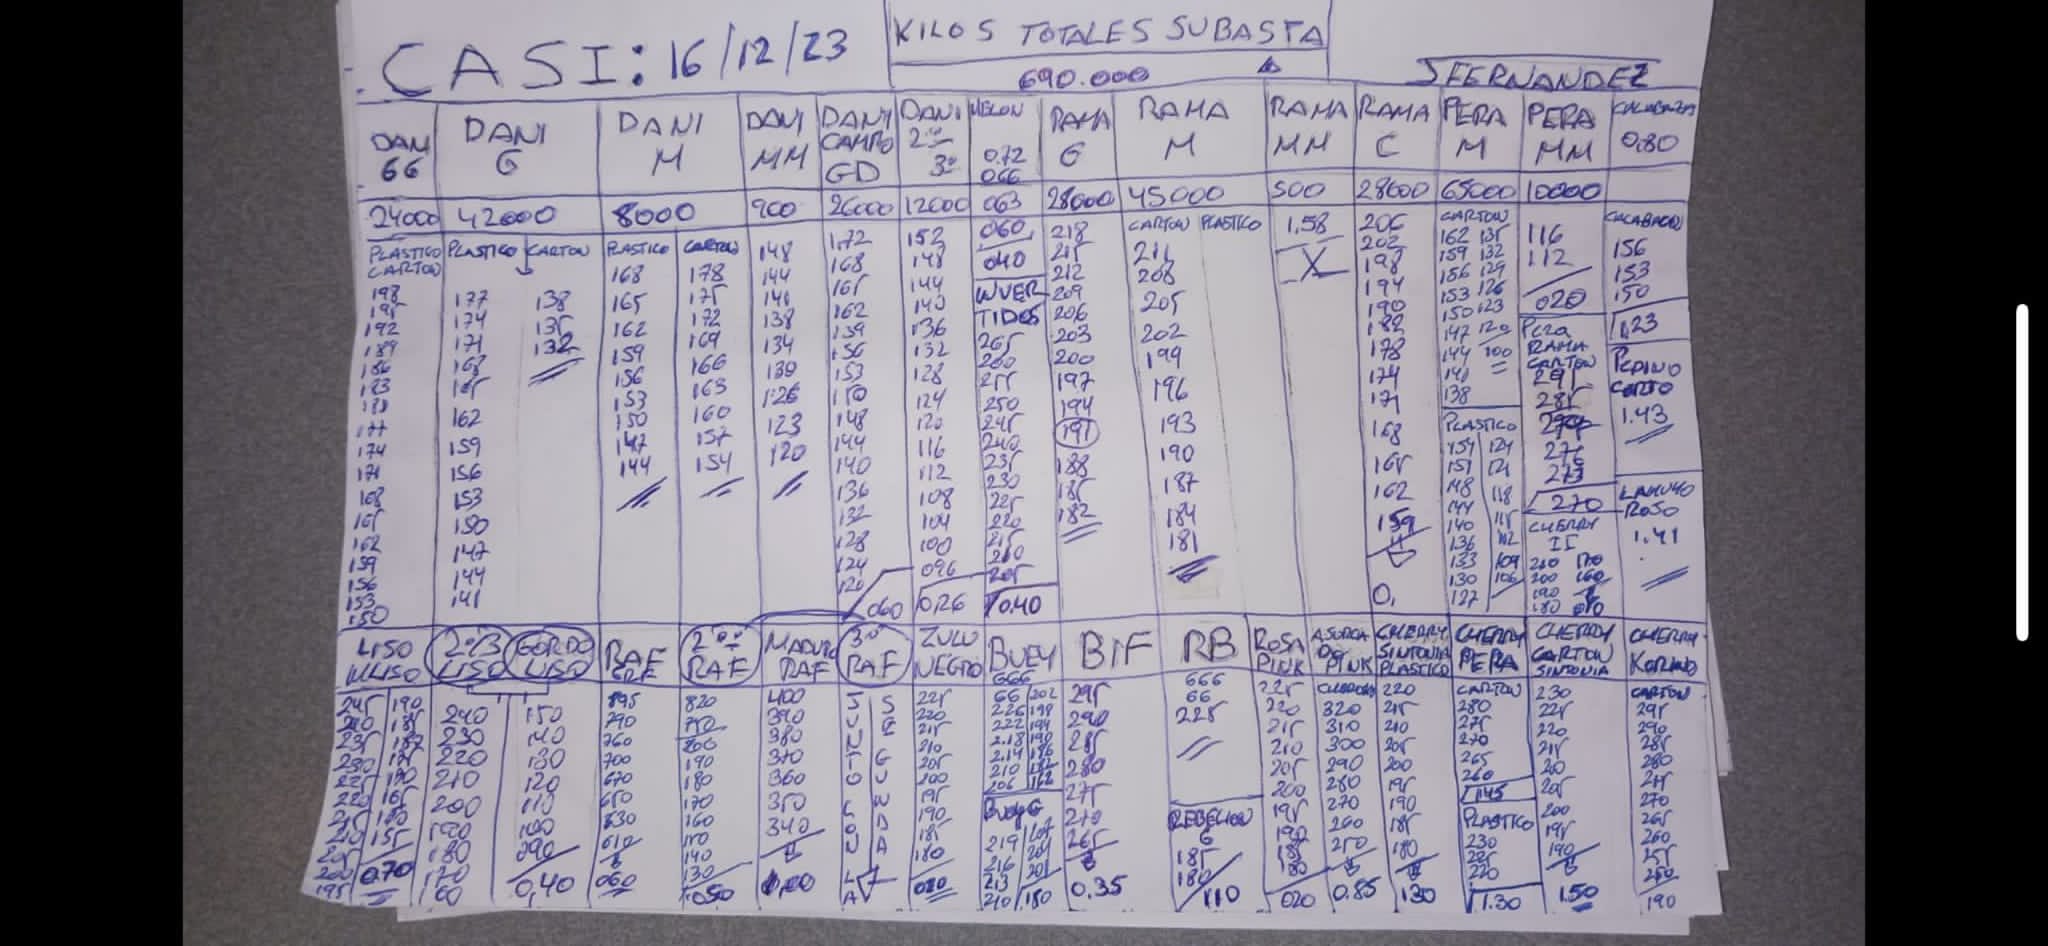 CASI: 16/12/23
KILOS TOTALES SUBASTA
690.000
J FERNANDEZ
DANI GG
DANI G
DANI M
DANI MM
DANI CAMPO GD
DANI 2ª 3ª
MELON 0.72 066
RAMA G
RAMA M
RAMA MM
RAMA C
PERA M
PERA MM
CALABAZA 0.80
24000 42000 8000 900 26000 12000 063 28000 45000 500 28000 65000 10000
PLASTICO CARTON
198
195
192
189
186
183
180
177
174
171
168
165
162
159
156
153
150
PLASTICO
177
174
171
168
165
162
159
156
153
150
147
144
141
CARTON
138
135
132
PLASTICO
168
165
162
159
156
153
150
147
144
CARTON
178
175
172
169
166
163
160
157
154
148
144
140
138
134
130
126
123
120
1.72
168
165
162
159
156
153
150
148
144
140
136
132
128
124
120
060
152
148
144
140
136
132
128
124
120
116
112
108
104
100
096
026
060
040
INVERTIDOS
265
260
255
250
245
240
235
230
225
220
215
210
205
0.40
218
215
212
209
206
203
200
197
194
191
188
185
182
CARTON PLASTICO
211
208
205
202
199
196
193
190
187
184
181
1,58
X
206
202
198
194
190
182
178
174
171
168
165
162
159
0,
CARTON
162 135
159 132
156 129
153 126
150 123
147 120
144 100
141
138
PLASTICO
154 124
151 121
148 118
144 115
140 112
136 109
133 106
130
127
116
112
020
PERA RAMA CARTON
291
285
279
276
273
270
CHERRY II
210 170
200 160
190
180 010
CALABACIN
156
153
150
1,23
PEPINO CORTO
1.43
LAMUYO ROJO
1.41
LISO M LISO
245 190
240 185
235 182
230 170
225 165
220 160
215 155
210
205 0.70
200
195
2ª/3 LISO
240
230
220
210
200
190
180
170
160
GORDO LISO
150
140
130
120
110
100
090
0,40
RAF
895
790
760
700
670
650
630
610
060
2ª RAF
820
750
200
190
180
170
160
150
140
130
050
MADURO RAF
400
390
380
370
360
350
340
3ª RAF
JUNTO CON LA SEGUNDA
ZULU NEGRO
225
220
215
210
205
200
195
190
185
180
020
BUEY
666
66 202
226 198
222 194
2.18 190
2.14 186
210 182
206 162
BUEY G
219 207
216 204
213 201
210 180
BIF
295
290
285
280
275
270
265
0.35
RB
666
66
225
REBELION
G
185
180
110
ROSA PINK
225
220
215
210
205
200
195
190
185
180
020
ASURCADO PINK
320
310
300
290
280
270
260
250
0.85
CHERRY SINTONIA PLASTICO
220
215
210
205
200
195
190
185
180
130
CHERRY PERA
CARTON
280
275
270
265
260
145
PLASTICO
230
225
220
1.30
CHERRY CARTON SINTONIA
230
225
220
215
210
205
200
195
190
1.50
CHERRY KORINO
CARTON
295
290
285
280
275
270
265
260
255
250
190